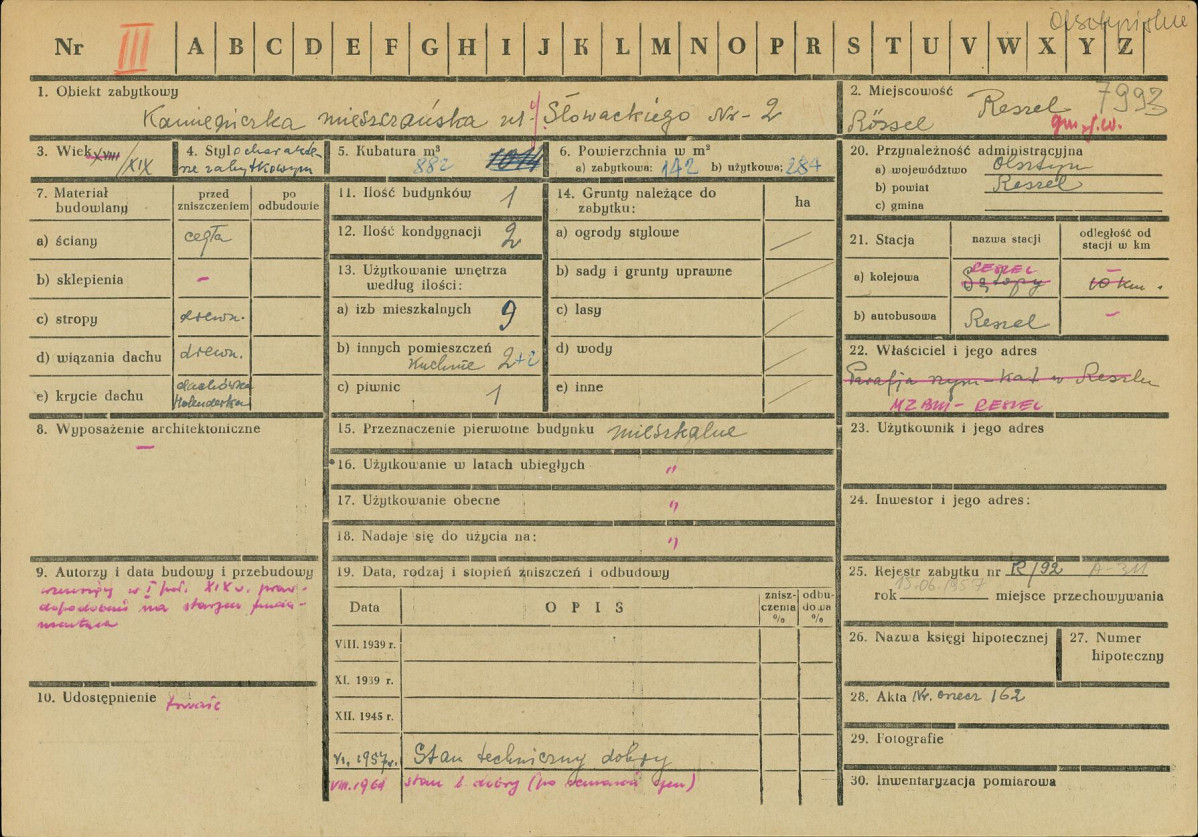 Olsztyńskie
Nr III A B C D E F G H I J K L M N O P R S T U V W X Y Z
1. Obiekt zabytkowy
Kamieniczka mieszczańska ul. Słowackiego Nr - 2
2. Miejscowość 7993
Reszel
Rössel gm. loco
3. Wiek XVIII/XIX
4. Styl o charakte
rze zabytkowym
5. Kubatura m³
882 1014
6. Powierzchnia w m²
a) zabytkowa: 142 b) użytkowa: 284
20. Przynależność administracyjna
a) województwo Olsztyn
b) powiat Reszel
c) gmina
7. Materiał budowlany
przed zniszczeniem
po odbudowie
a) ściany cegła
b) sklepienia –
c) stropy drewn.
d) wiązania dachu drewn.
e) krycie dachu dachówka
holenderka
11. Ilość budynków 1
12. Ilość kondygnacji 2
13. Użytkowanie wnętrza
według ilości:
a) izb mieszkalnych 9
b) innych pomieszczeń
Kuchnie 2+2
c) piwnic 1
14. Grunty należące do
zabytku:
ha
a) ogrody stylowe
b) sady i grunty uprawne
c) lasy
d) wody
e) inne
21. Stacja
nazwa stacji
odległość od
stacji w km
a) kolejowa RESZEL
Sątopy 10 km.
b) autobusowa Reszel –
22. Właściciel i jego adres
Parafja rzym-kat w Reszlu
MZBM - RESZEL
8. Wyposażenie architektoniczne
–
15. Przeznaczenie pierwotne budynku mieszkalne
16. Użytkowanie w latach ubiegłych "
17. Użytkowanie obecne "
18. Nadaje się do użycia na: "
23. Użytkownik i jego adres
24. Inwestor i jego adres:
9. Autorzy i data budowy i przebudowy
wzniesiony w I poł. XIX w. praw-
dopodobnie na starszych funda-
mentach
19. Data, rodzaj i stopień zniszczeń i odbudowy
Data
OPIS
znisz-
czenia
%
odbu-
dowa
%
VIII. 1939 r.
XI. 1939 r.
XII. 1945 r.
VI. 1957 r. Stan techniczny dobry
VIII. 1961 stan b. dobry (po remoncie
25. Rejestr zabytku nr R/92 A-311
15.06.1957
rok miejsce przechowywania
26. Nazwa księgi hipotecznej
27. Numer
hipoteczny
10. Udostępnienie
28. Akta Nr. 162
29. Fotografie
30. Inwentaryzacja pomiarowa